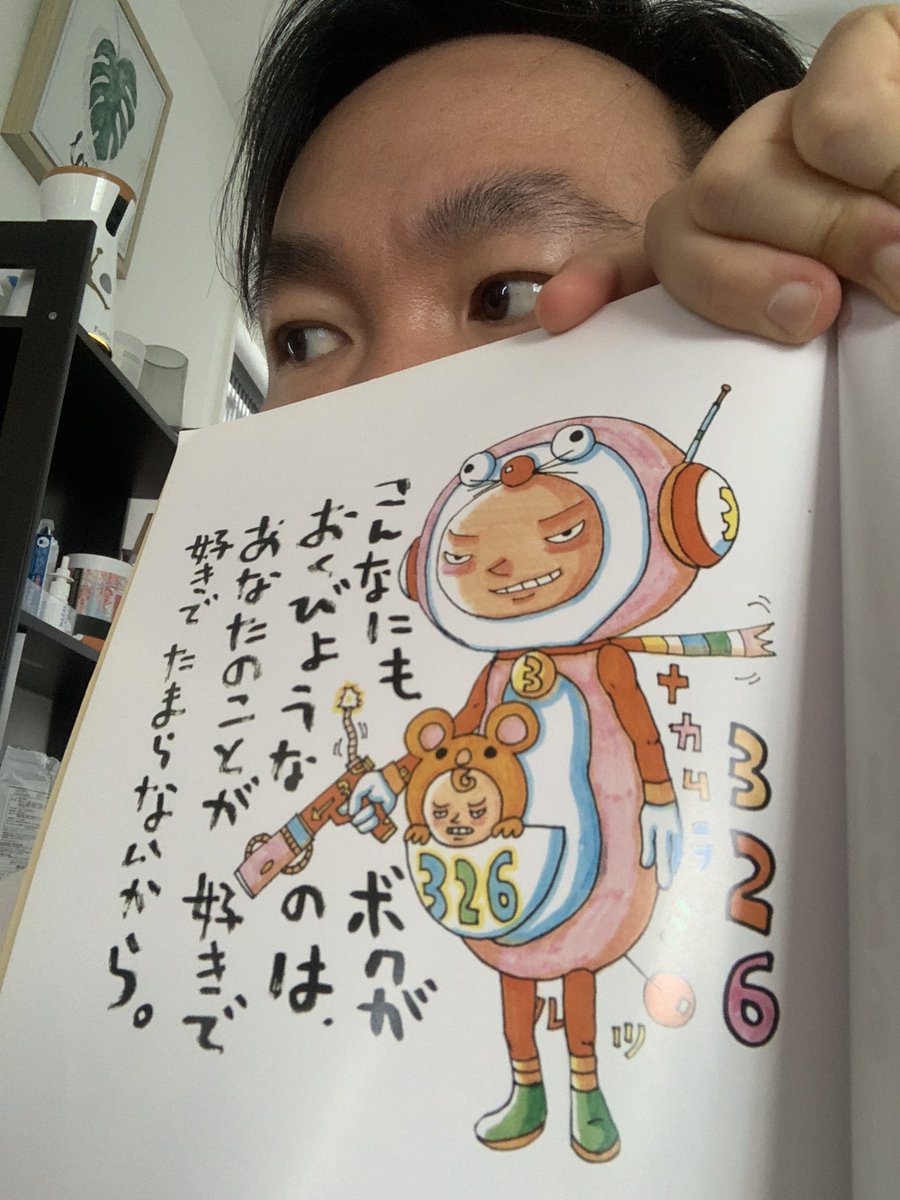 326
ナカムラミツル
3
3
326
こんなにも ボクが
おくびょうな のは、
あなたのことが 好きで
好きで たまらないから。